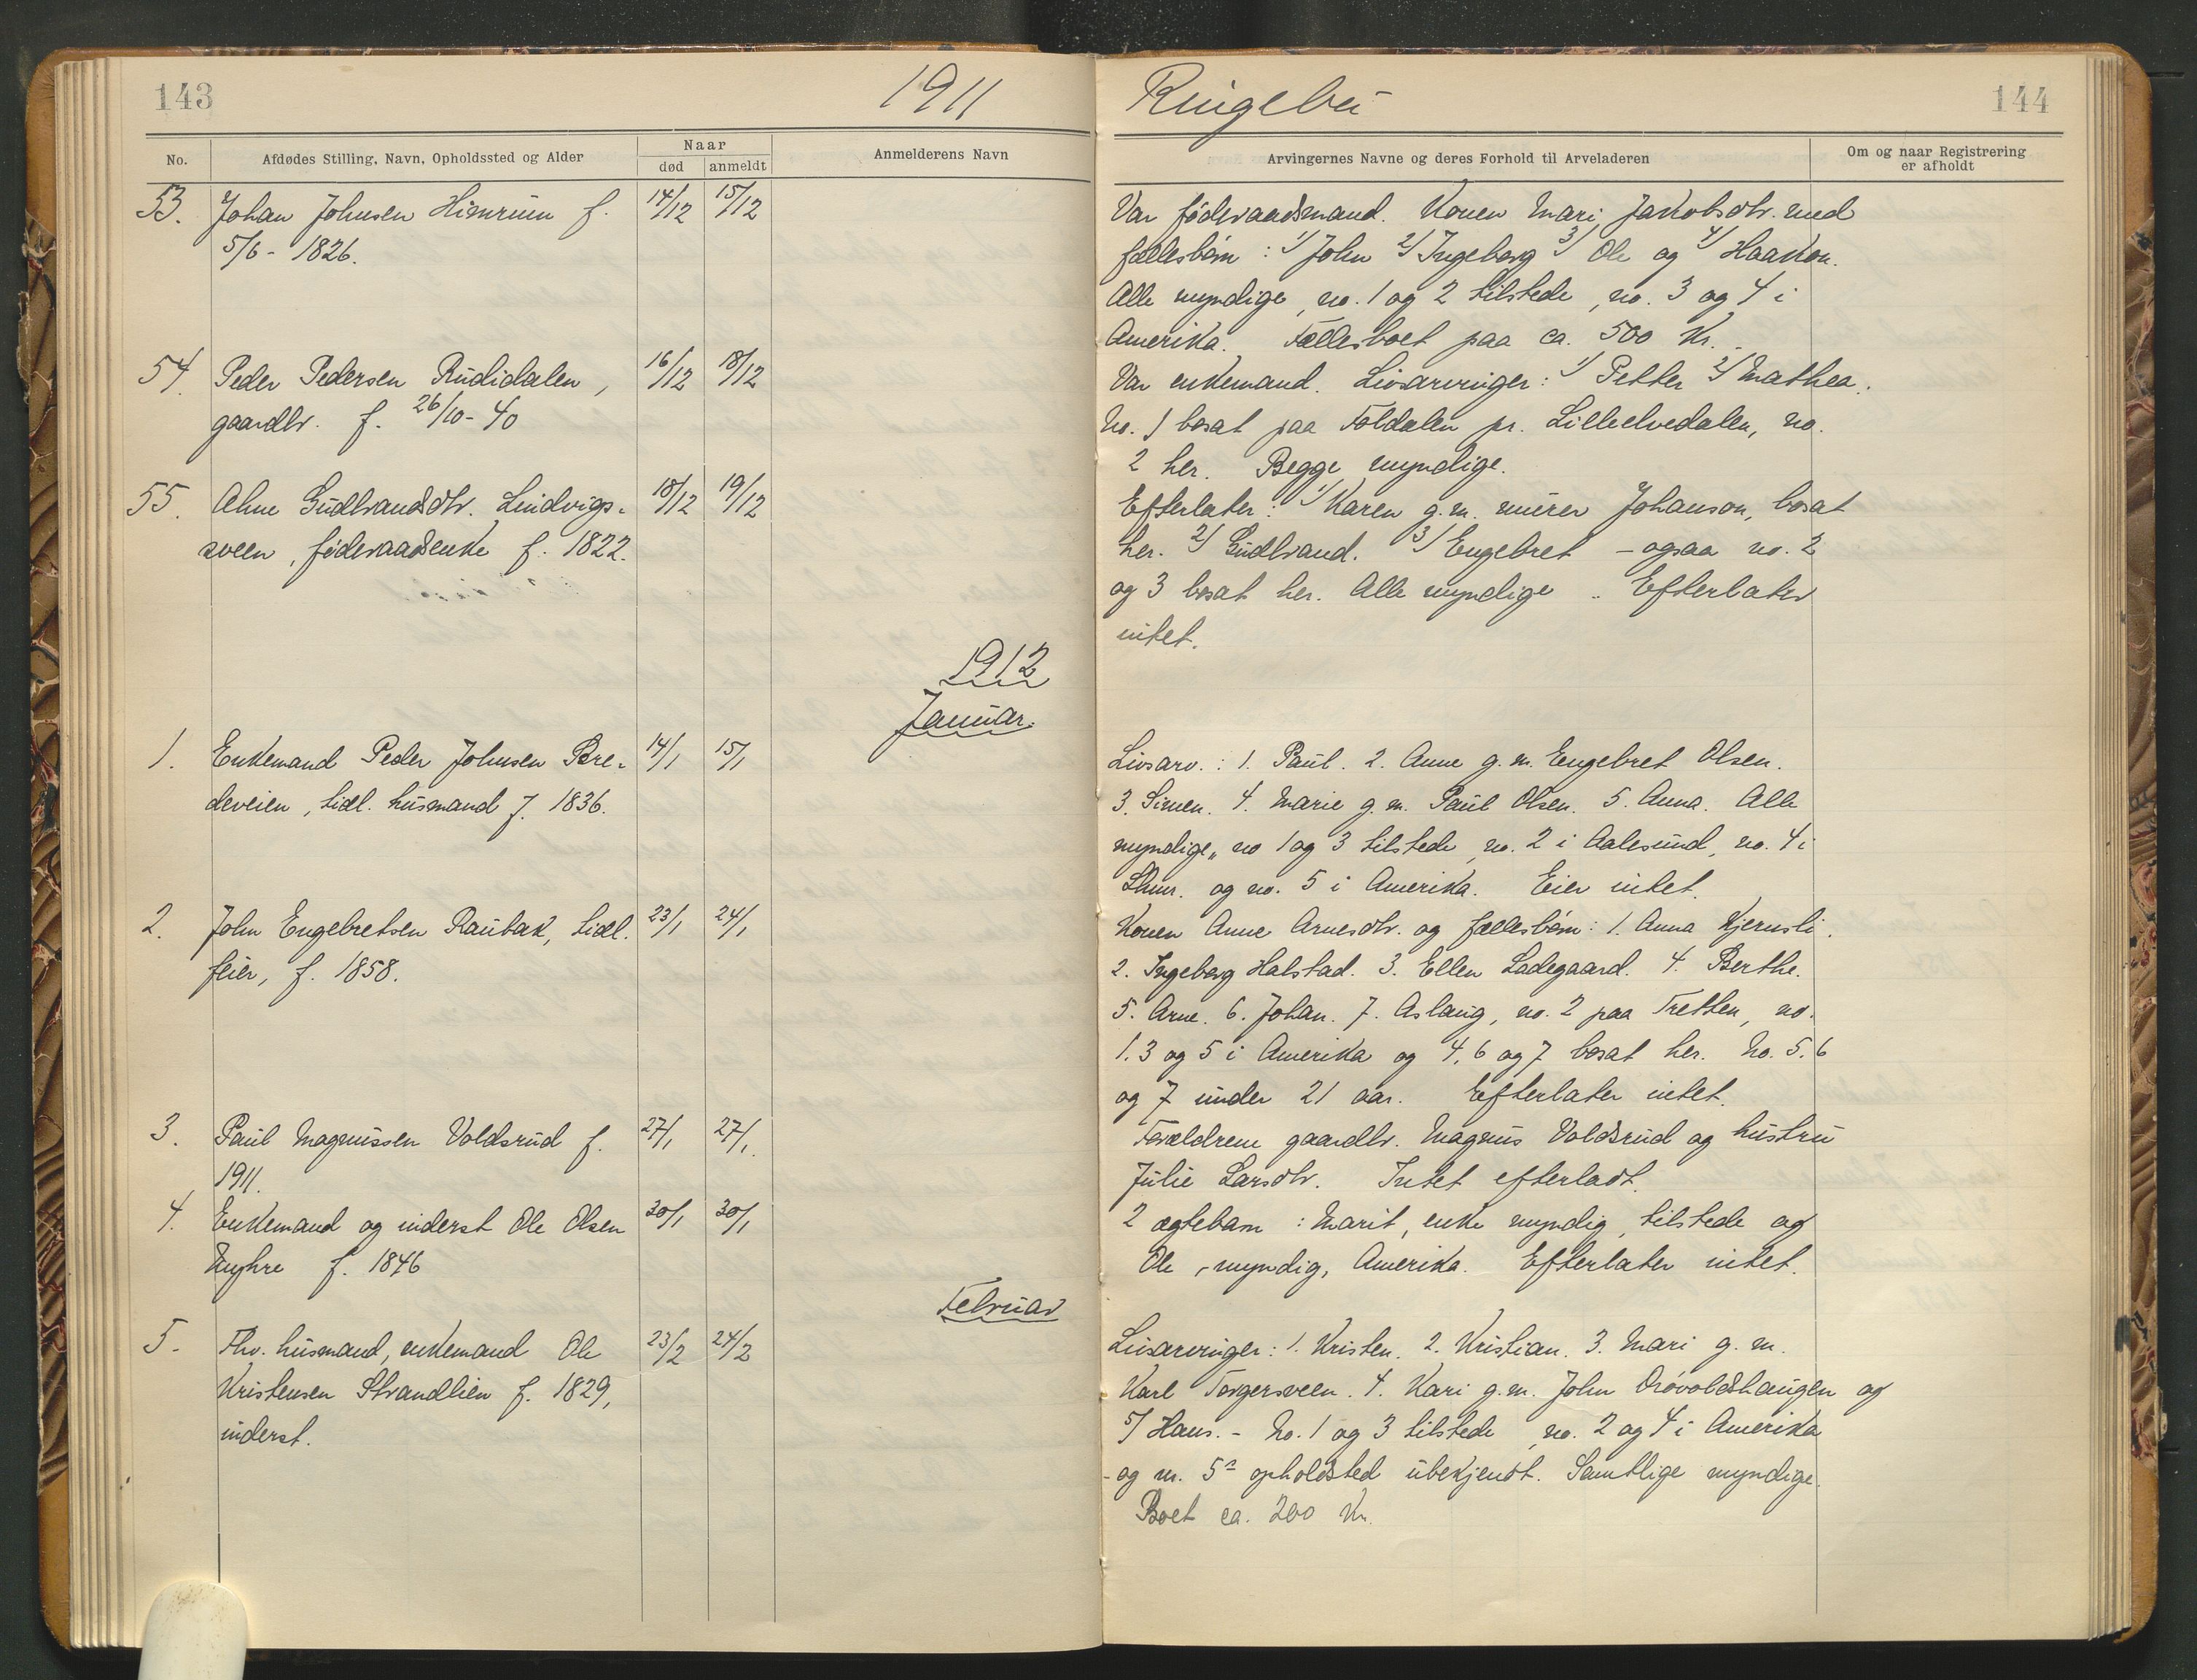 143
1911
No.
Afdødes Stilling, Navn, Opholdssted og Alder
Naar
død
anmeldt
Anmelderens Navn
53. Johan Johnsen Himrum f. 14/12 15/12
5/6 - 1826.
54. Peder Pedersen Rudidalen, 16/12 18/12
gaardbr. f. 26/10 - 40
55. Ahne Gudbrandsdtr. Lindvigs- 18/12 19/12
sveen, føderaadsenke f. 1822.
1912
Januar.
1. Enkemand Peder Johnsen Bre- 14/1 15/1
deveien, tidl. husmand f. 1836.
2. John Engebretsen Raubak, tidl. 23/1 24/1
feier, f. 1858.
3. Paul Magnussen Voldsrud f. 27/1 27/1.
1911.
4. Enkemand og inderst Ole Olsen 30/1 30/1
Nyhre f. 1846
Februar
5. Fhv. husmand, enkemand Ole 23/2 24/2
Kristensen Strandlien f. 1829,
inderst.
Ringebu
144
Arvingernes Navne og deres Forhold til Arveladeren
Om og naar Registrering
er afholdt
Var føderaadsmand. Konen Mari Jakobsdtr. med
fællesbørn : 1/ John 2/ Ingeborg 3/ Ole og 4/ Haakon.
Alle myndige, no. 1 og 2 tilstede, no. 3 og 4 i
Amerika. Fællesboet paa ca. 500 Kr.
Var enkemand. Livsarvinger: 1/ Petter 2/ Mathea.
No. 1 bosat paa Foldalen pr. Lilleelvedalen, no.
2 her. Begge myndige.
Efterlater: 1/ Karen g.m. murer Johanson, bosat
her. 2/ Gudbrand. 3/ Engebret - ogsaa no. 2
og 3 bosat her. Alle myndige.. Efterlater
intet.
Livsarv. : 1. Paul. 2. Anne g.m. Engebret Olsen.
3. Simen. 4. Marie g.m. Paul Olsen. 5. Anna. Alle
myndige,, no 1 og 3 tilstede, no. 2 i Aalesund, no. 4 i
Lhmr. og no. 5 i Amerika. Eier intet.
Konen Anne Arnesdtr. og fællesbørn: 1. Anna Kjernsli.
2. Ingeborg Halstad. 3. Ellen Ladegaard. 4. Berthe.
5. Arne. 6. Johan. 7. Aslaug, no. 2 paa Tretten, no.
1. 3 og 5 i Amerika og 4, 6 og 7 bosat her. No. 5. 6
og 7 under 21 aar. Efterlater intet.
Forældrene gaardbr. Magnus Voldsrud og hustru
Julie Larsdtr. Intet efterladt.
2 ægtebarn : Marit, enke myndig, tilstede og
Ole, myndig, Amerika. Efterlater intet.
Livsarvinger: 1. Kristen. 2. Kristian. 3. Mari g.m.
Karl Torgersveen. 4. Kari g.m. John Drøvoldshaugen og
5/ Hans. - No. 1 og 3 tilstede, no. 2 og 4 i Amerika
- og nr. 5s opholdsted ubekjendt. Samtlige myndige.
Boet ca. 200 Kr.